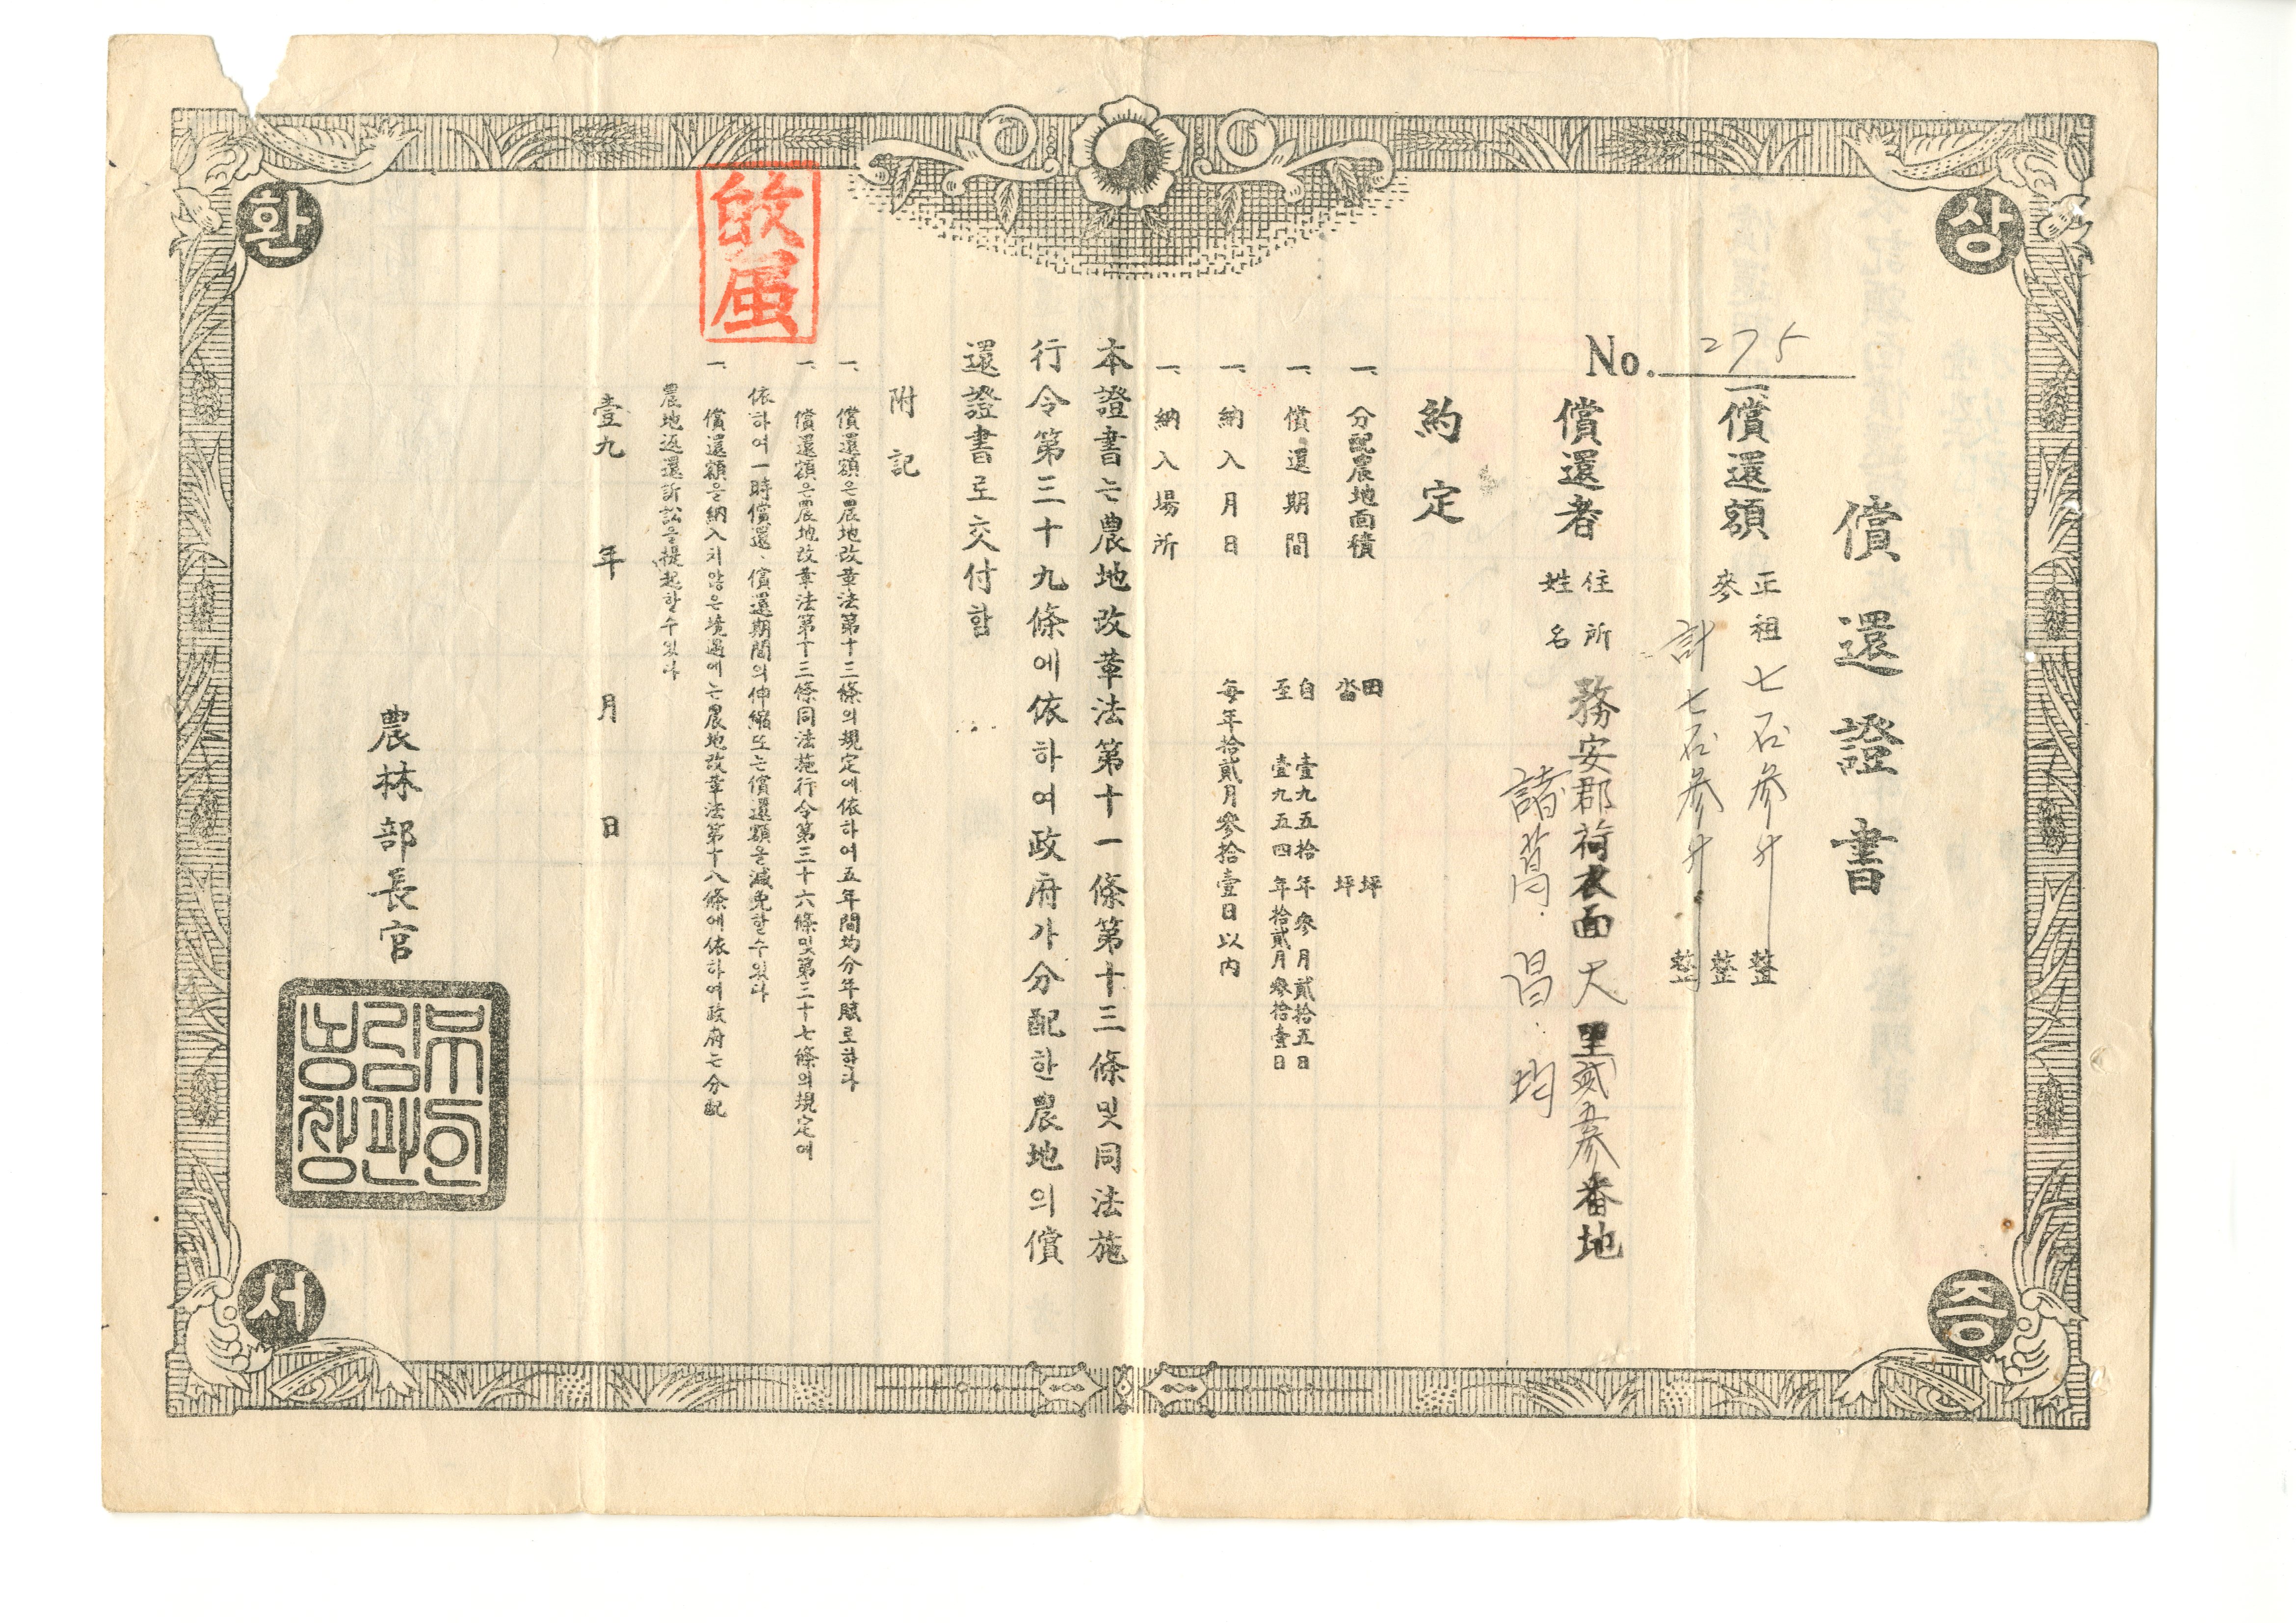 상
환
증
서
No. 275
償還證書
一、償還額 正祖 七石参升 整
麥 整
計 七石参升 整
償還者 住所 務安郡荷衣面 大里 貳五参 番地
姓名 昌均
約定
一、分配農地面積 田 坪
畓 坪
一、償還期間 自 壹九五拾年參月貳拾五日
至 壹九五四年拾貳月參拾壹日
一、納入月日 每年拾貳月參拾壹日以內
一、納入場所
本證書는農地改革法第十一條第十三條및同法施
行令第三十九條에依하여政府가分配한農地의償
還證書로交付함
附記
一、償還額은農地改革法第十三條의規定에依하여五年間均分年賦로하다
一、償還額은農地改革法第十三條同法施行令第三十六條및第三十七條의規定에
依하여一時償還、償還期間의伸縮또는償還額을減免할수있다
一、償還額을納入치않은境遇에는農地改革法第十八條에依하여政府는分配
農地返還訴訟을提起할수있다
壹九 年 月 日
農林部長官
농림부장관인